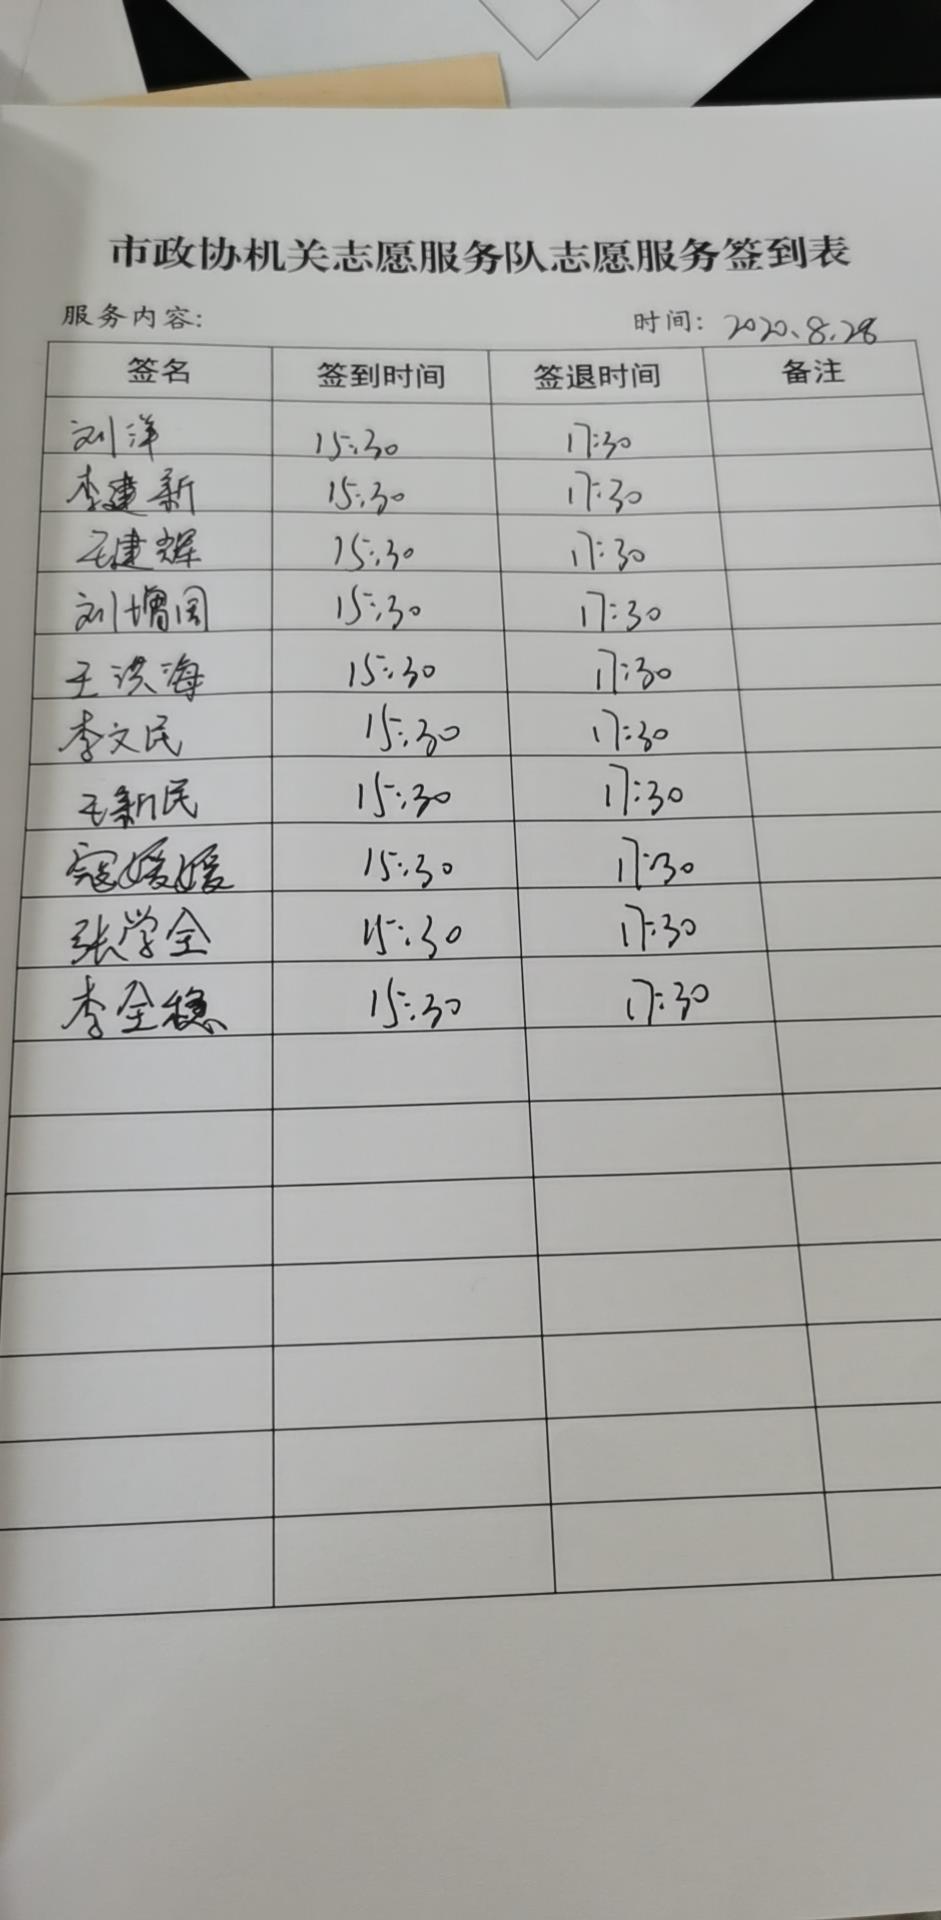 市政协机关志愿服务队志愿服务签到表
服务内容: 时间: 2020.8.28
签名 签到时间 签退时间 备注
刘洋 15:30 17:30
李建新 15:30 17:30
王建辉 15:30 17:30
刘增国 15:30 17:30
王洪海 15:30 17:30
李文民 15:30 17:30
王新民 15:30 17:30
寇媛媛 15:30 17:30
张学全 15:30 17:30
李全稳 15:30 17:30